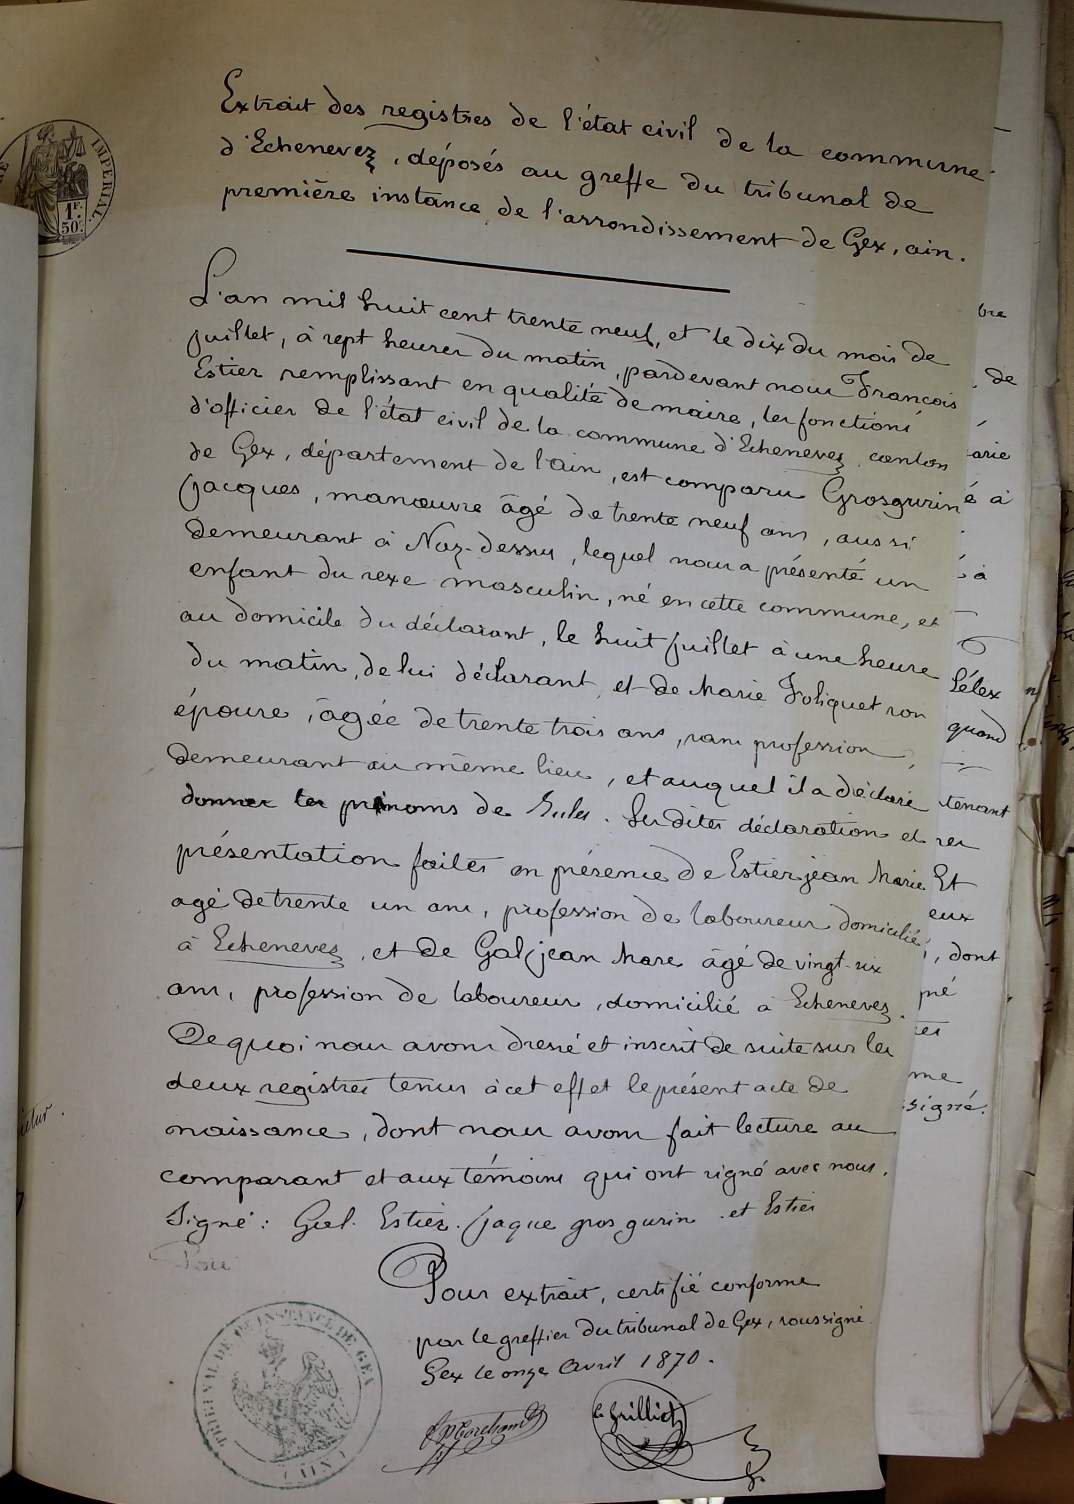 IMPERIAL.
1F.
50c.
Extrait des registres de l'état civil de la commune
d'Echenevez, déposés au greffe du tribunal de
première instance de l'arrondissement de Gex, ain.
L'an mil huit cent trente neuf, et le dix du mois de
juillet, à sept heures du matin, pardevant nous François
Estier remplissant en qualité de maire, les fonctions
d'officier de l'état civil de la commune d'Echenevez canton
de Gex, département de l'ain, est comparu Grosgurin
Jacques, manœuvre âgé de trente neuf ans, aussi
demeurant à Naz-dessus, lequel nous a présenté un
enfant du sexe masculin, né en cette commune, et
au domicile du déclarant, le huit juillet à une heure
du matin, de lui déclarant, et de Marie Foliquet son
épouse, âgée de trente trois ans, sans profession,
demeurant au même lieu, et auquel il a déclaré
donner les prénoms de Jules. Les dites déclaration et
présentation faites en présence de Estier jean Marie
agé de trente un ans, profession de laboureur domicilié
à Echenevez, et de Gal jean Marc âgé de vingt-six
ans, profession de laboureur, domicilié à Echenevez.
De quoi nous avons dressé et inscrit de suite sur les
deux registres tenus à cet effet le présent acte de
naissance, dont nous avons fait lecture au
comparant et aux témoins qui ont signé avec nous.
Signé: Gal. Estier. Jaque gros gurin et Estier
Pour extrait, certifié conforme
par le greffier du tribunal de Gex, soussigné
Gex le onze Avril 1870.
TRIBUNAL DE 1RE INSTANCE DE GEX
(AIN)